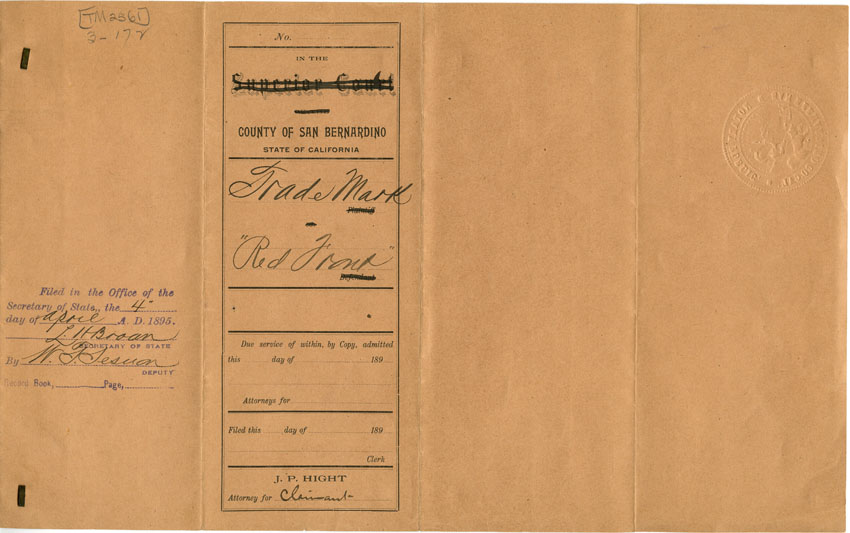 TM2361
3-172
Filed in the Office of the
Secretary of State, the 4
day of April A. D. 1895.
L. H. Brown
SECRETARY OF STATE
By W. T. Sesnon
DEPUTY
Record Book, Page,
No.
IN THE
Superior Court
COUNTY OF SAN BERNARDINO
STATE OF CALIFORNIA
Trade Mark
Plaintiff
"Red Front"
Defendant
Due service of within, by Copy, admitted
this day of 189
Attorneys for
Filed this day of 189
Clerk
J. P. HIGHT
Attorney for Claimant